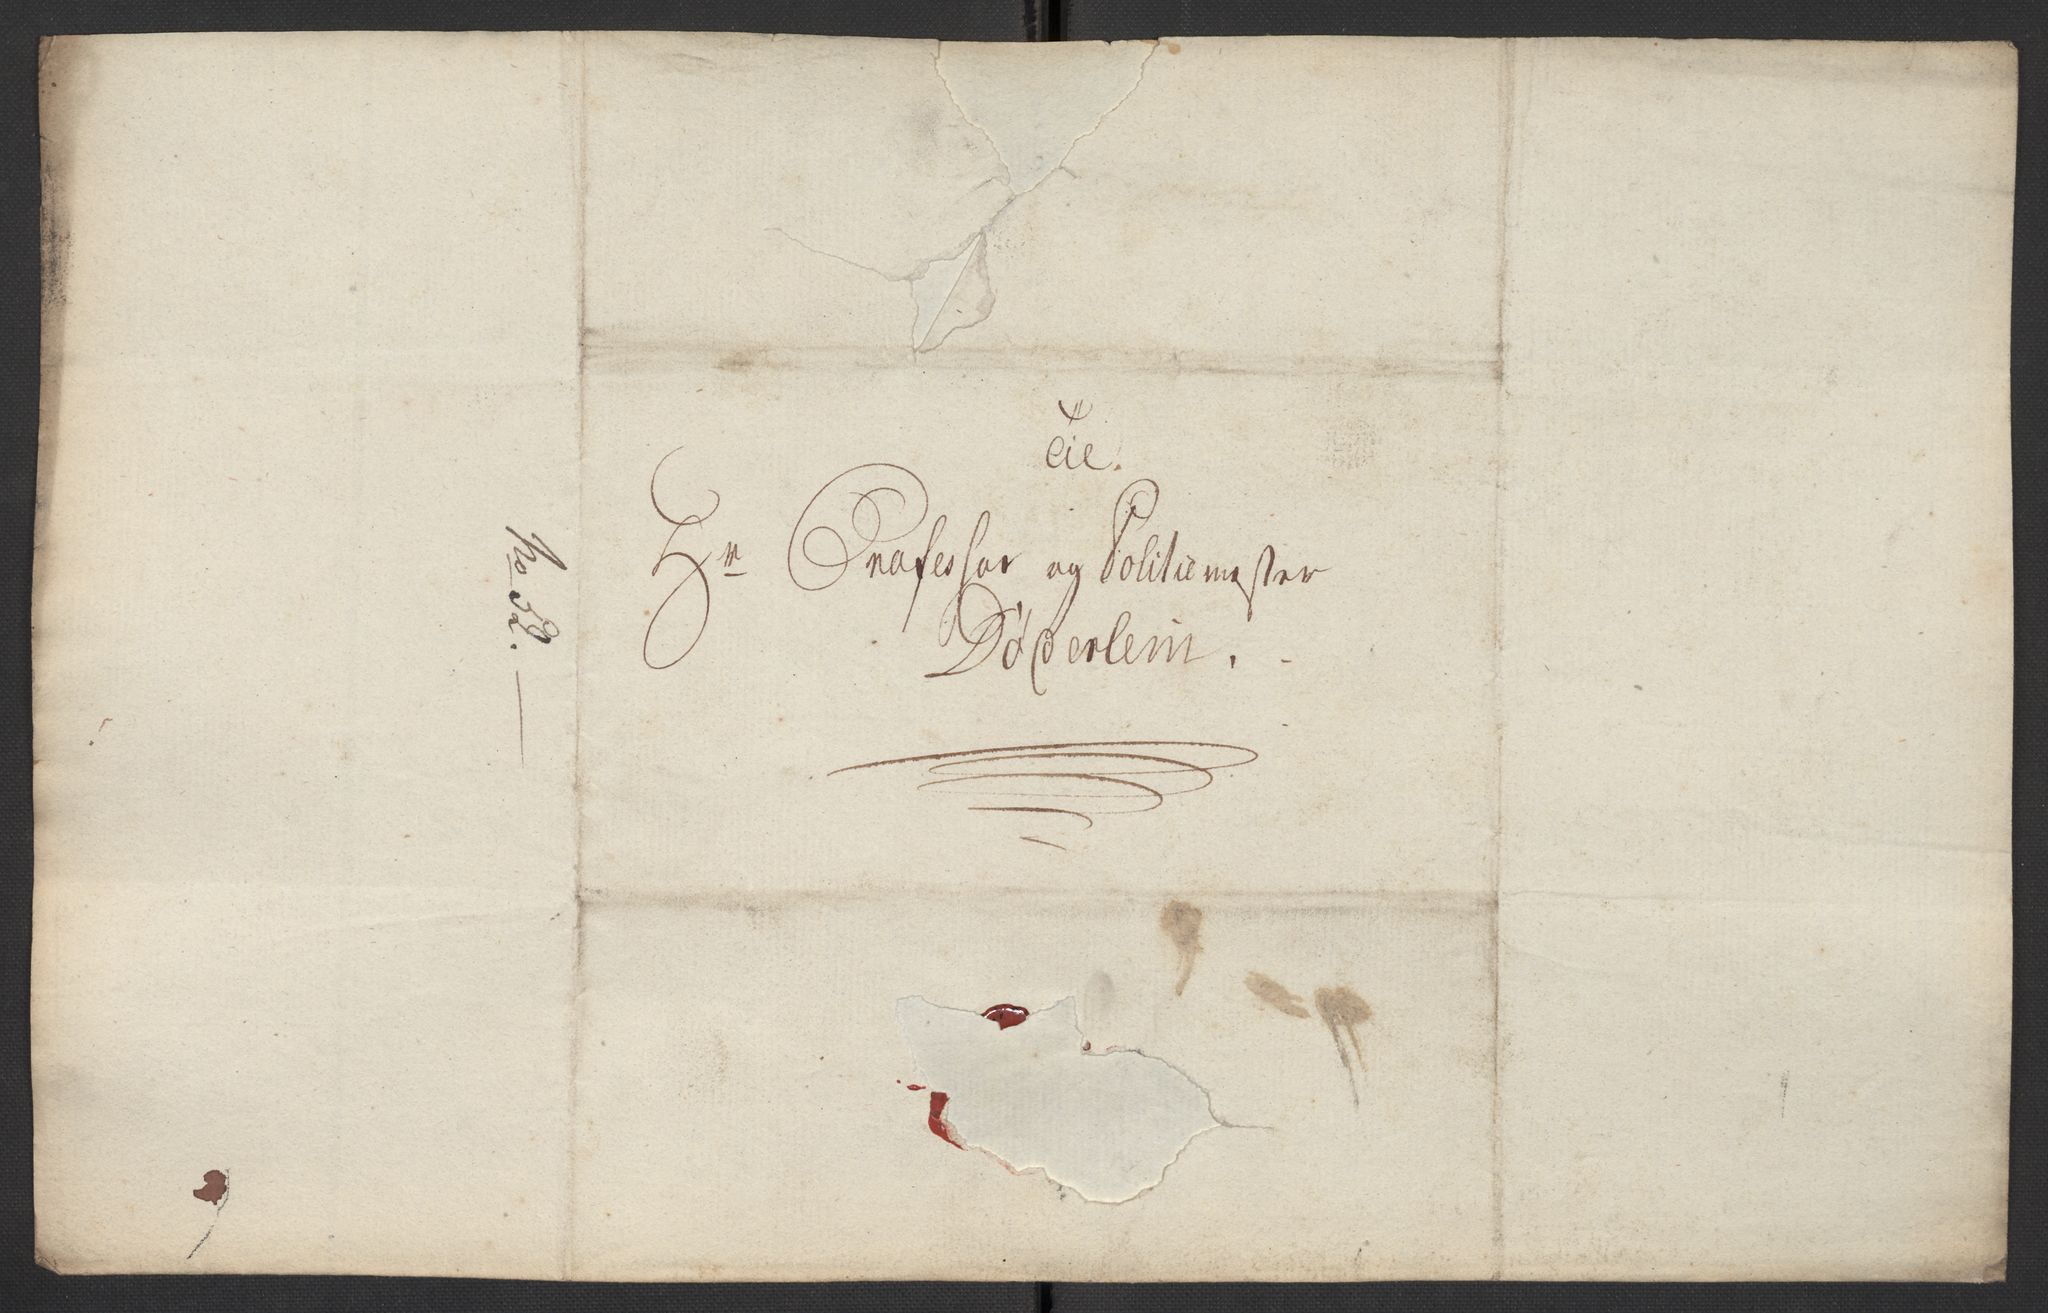 Til
Hr Professor og Politiemester
Döderlein.
No 32.